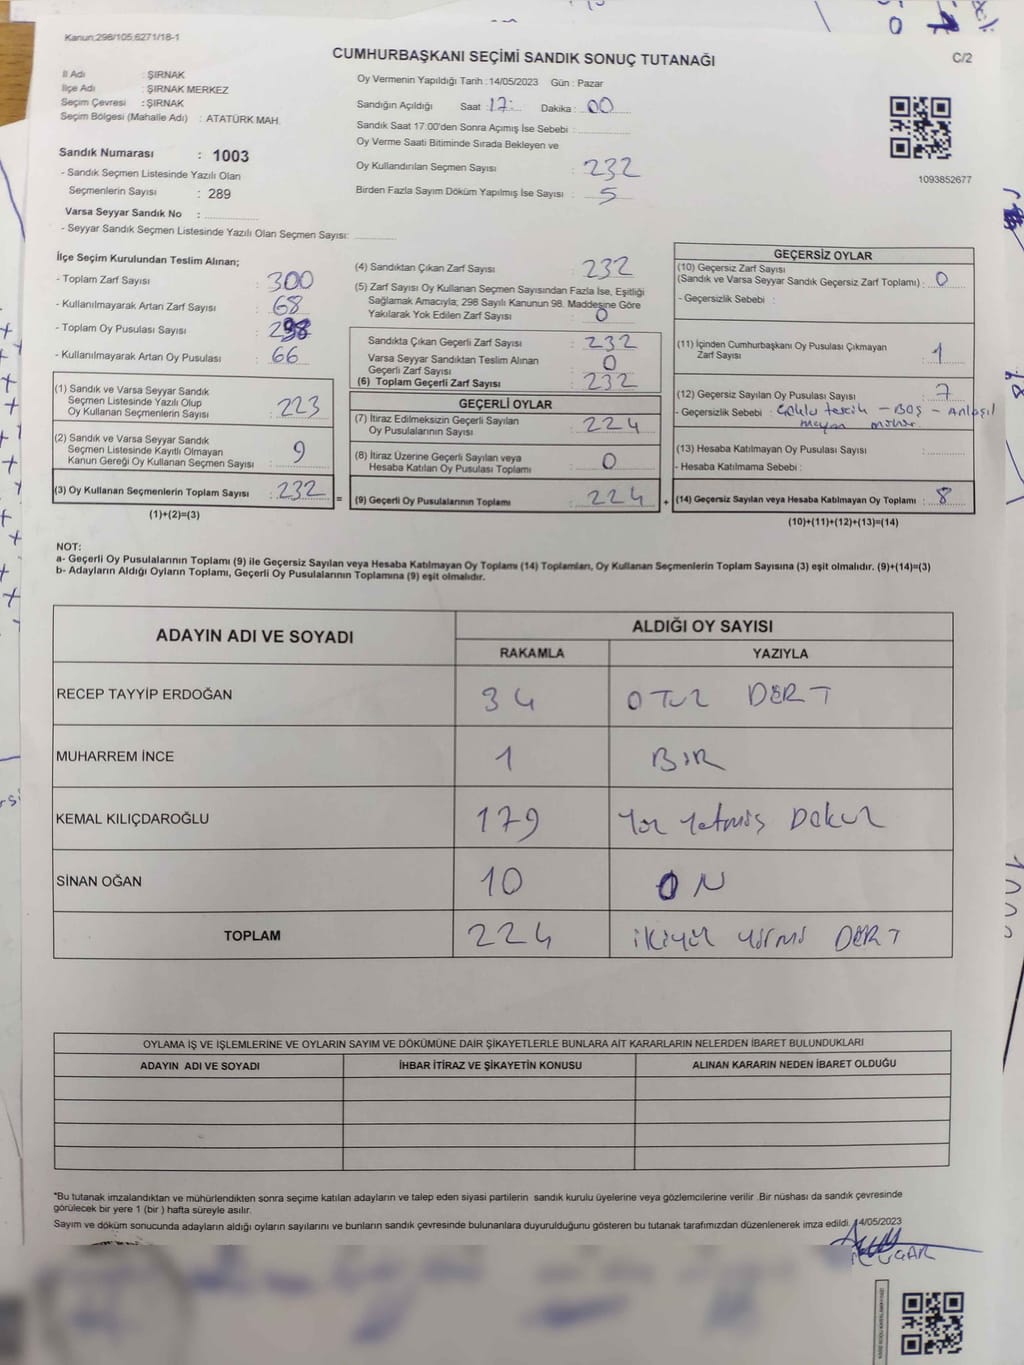 Kanun:298/105,6271/18-1
CUMHURBAŞKANI SEÇİMİ SANDIK SONUÇ TUTANAĞI
C/2
İl Adı : ŞIRNAK
İlçe Adı : ŞIRNAK MERKEZ
Seçim Çevresi : ŞIRNAK
Seçim Bölgesi (Mahalle Adı) : ATATÜRK MAH.
Sandık Numarası : 1003
- Sandık Seçmen Listesinde Yazılı Olan
Seçmenlerin Sayısı : 289
Varsa Seyyar Sandık No :
- Seyyar Sandık Seçmen Listesinde Yazılı Olan Seçmen Sayısı:
Oy Vermenin Yapıldığı Tarih : 14/05/2023 Gün : Pazar
Sandığın Açıldığı Saat : 17: Dakika : 00
Sandık Saat 17.00'den Sonra Açımış İse Sebebi :
Oy Verme Saati Bitiminde Sırada Bekleyen ve
Oy Kullandırılan Seçmen Sayısı : 232
Birden Fazla Sayım Döküm Yapılmış İse Sayısı : 5
1093852677
İlçe Seçim Kurulundan Teslim Alınan;
- Toplam Zarf Sayısı : 300
- Kullanılmayarak Artan Zarf Sayısı : 68
- Toplam Oy Pusulası Sayısı : 298
- Kullanılmayarak Artan Oy Pusulası : 66
(1) Sandık ve Varsa Seyyar Sandık
Seçmen Listesinde Yazılı Olup
Oy Kullanan Seçmenlerin Sayısı : 223
(2) Sandık ve Varsa Seyyar Sandık
Seçmen Listesinde Kayıtlı Olmayan
Kanun Gereği Oy Kullanan Seçmen Sayısı : 9
(3) Oy Kullanan Seçmenlerin Toplam Sayısı : 232 =
(1)+(2)=(3)
(4) Sandıktan Çıkan Zarf Sayısı : 232
(5) Zarf Sayısı Oy Kullanan Seçmen Sayısından Fazla İse, Eşitliği
Sağlamak Amacıyla; 298 Sayılı Kanunun 98. Maddesine Göre
Yakılarak Yok Edilen Zarf Sayısı : 0
Sandıkta Çıkan Geçerli Zarf Sayısı : 232
Varsa Seyyar Sandıktan Teslim Alınan
Geçerli Zarf Sayısı : 0
(6) Toplam Geçerli Zarf Sayısı : 232
GEÇERLİ OYLAR
(7) İtiraz Edilmeksizin Geçerli Sayılan
Oy Pusulalarının Sayısı : 224
(8) İtiraz Üzerine Geçerli Sayılan veya
Hesaba Katılan Oy Pusulası Toplamı : 0
(9) Geçerli Oy Pusulalarının Toplamı : 224 +
GEÇERSİZ OYLAR
(10) Geçersiz Zarf Sayısı
(Sandık ve Varsa Seyyar Sandık Geçersiz Zarf Toplamı) : 0
- Geçersizlik Sebebi :
(11) İçinden Cumhurbaşkanı Oy Pusulası Çıkmayan
Zarf Sayısı : 1
(12) Geçersiz Sayılan Oy Pusulası Sayısı : 7
- Geçersizlik Sebebi : Çoklu tercih - BOŞ - Anlaşıl
mayan mühür
(13) Hesaba Katılmayan Oy Pusulası Sayısı :
- Hesaba Katılmama Sebebi :
(14) Geçersiz Sayılan veya Hesaba Katılmayan Oy Toplamı : 8
(10)+(11)+(12)+(13)=(14)
NOT:
a- Geçerli Oy Pusulalarının Toplamı (9) ile Geçersiz Sayılan veya Hesaba Katılmayan Oy Toplamı (14) Toplamları, Oy Kullanan Seçmenlerin Toplam Sayısına (3) eşit olmalıdır. (9)+(14)=(3)
b- Adayların Aldığı Oyların Toplamı, Geçerli Oy Pusulalarının Toplamına (9) eşit olmalıdır.
ADAYIN ADI VE SOYADI
ALDIĞI OY SAYISI
RAKAMLA YAZIYLA
RECEP TAYYİP ERDOĞAN 34 OTUZ DÖRT
MUHARREM İNCE 1 BİR
KEMAL KILIÇDAROĞLU 179 Yüz Yetmiş Dokuz
SİNAN OĞAN 10 ON
TOPLAM 224 İkiyüz yirmi DÖRT
OYLAMA İŞ VE İŞLEMLERİNE VE OYLARIN SAYIM VE DÖKÜMÜNE DAİR ŞİKAYETLERLE BUNLARA AİT KARARLARIN NELERDEN İBARET BULUNDUKLARI
ADAYIN ADI VE SOYADI İHBAR İTİRAZ VE ŞİKAYETİN KONUSU ALINAN KARARIN NEDEN İBARET OLDUĞU
*Bu tutanak imzalandıktan ve mühürlendikten sonra seçime katılan adayların ve talep eden siyasi partilerin sandık kurulu üyelerine veya gözlemcilerine verilir .Bir nüshası da sandık çevresinde
görülecek bir yere 1 (bir ) hafta süreyle asılır.
Sayım ve döküm sonucunda adayların aldığı oyların sayılarını ve bunların sandık çevresinde bulunanlara duyurulduğunu gösteren bu tutanak tarafımızdan düzenlenerek imza edildi. 14/05/2023